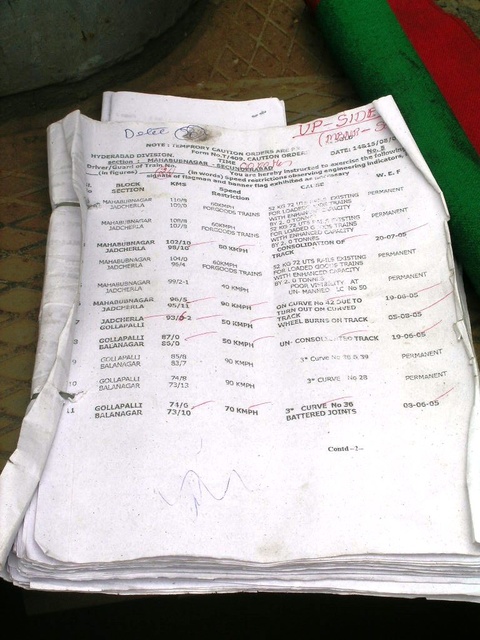 UP-SIDE
NOTE : TEMPRORY CAUTION ORDERS ARE
HYDERABAD DIVISION. Form No.T/409, CAUTION ORDER. DATE:
section : MAHABUBNAGAR - SECUNDERABAD TIME No. 8
Driver/Guard of Train No. You are hereby instructed to exercise the following
(in figures) (in words) Speed restrictions observing engineering indicators,
signals of flagmen and banner flag exhibited as necessary
BLOCK SECTION KMS Speed Restriction CAUSE W. E. F
MAHABUBNAGAR 110/9 60KMPH 52 KG 72 UTS RAILS EXISTING PERMANENT
JADCHERLA FORGOODS TRAINS FOR LOADED GOODS TRAINS
WITH ENHANCED CAPACITY
BY 2. 0 TONNES
MAHABUBNAGAR 108/9 60KMPH 52 KG 72 UTS RAILS EXISTING PERMANENT
JADCHERLA 107/8 FORGOODS TRAINS FOR LOADED GOODS TRAINS
WITH ENHANCED CAPACITY
BY 2. 0 TONNES
MAHABUBNAGAR 102/10 50 KMPH CONSOLIDATION OF 20-07-05
JADCHERLA TRACK
MAHABUBNAGAR 104/0 60KMPH 52 KG 72 UTS RAILS EXISTING PERMANENT
JADCHERLA 96/4 FORGOODS TRAINS FOR LOADED GOODS TRAINS
WITH ENHANCED CAPACITY
BY 2. 0 TONNES
MAHABUBNAGAR 99/2-1 90 KMPH POOR VISIBILITY AT PERMANENT
JADCHERLA UN- MANNED LC No 50
MAHABUBNAGAR 96/5 90 KMPH ON CURVE No 42 DUE TO
JADCHERLA 95/11 TURN OUT ON CURVED
TRACK
JADCHERLA 50 KMPH WHEEL BURNS ON TRACK 05-08-05
GOLLAPALLI
8 GOLLAPALLI 87/0 50 KMPH UN- CONSOLIDATED TRACK 19-06-05
BALANAGAR 86/0
9 GOLLAPALLI 85/8 90 KMPH 3° Curve No 38 & 39 PERMANENT
BALANAGAR 83/7
10 GOLLAPALLI 74/8 90 KMPH 3° CURVE No 28 PERMANENT
BALANAGAR 73/13
11 GOLLAPALLI 74/6 70 KMPH 3° CURVE No 36 08-06-05
BALANAGAR 73/10 BATTERED JOINTS
Contd--2--